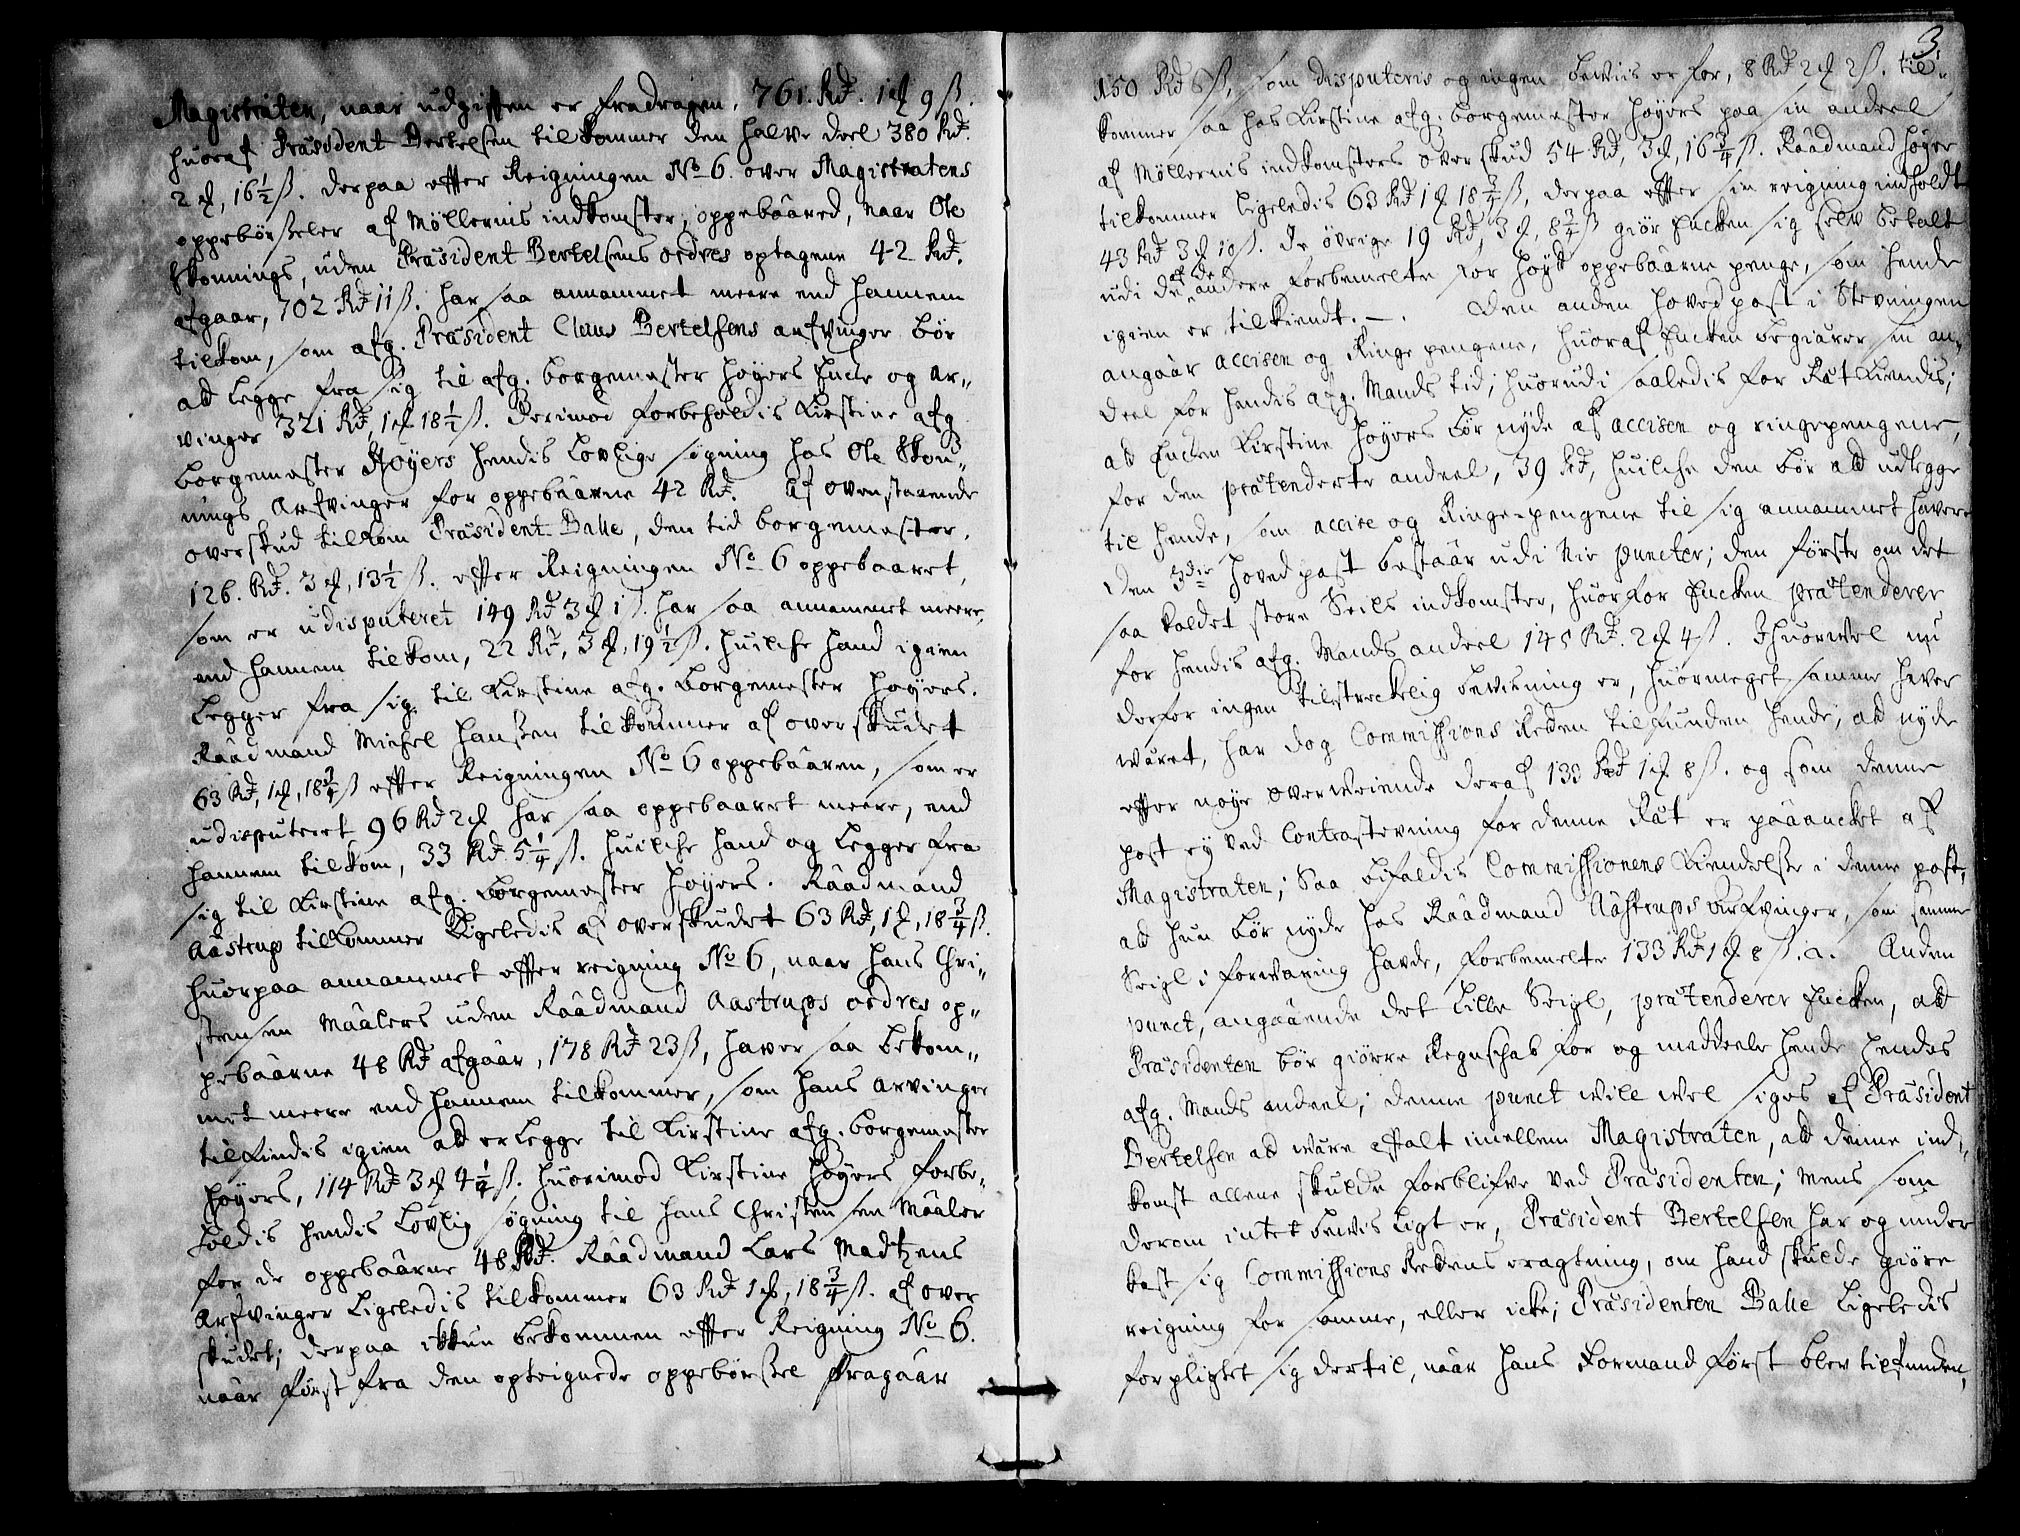 Magistraten, naar udgifften er fradragen, 761. Rd. 1 ₰ 9 ß.
huoraf Præsident Bertelsen tilkommer den halve deel 380 Rd.
2 ₰, 16½ ß. derpaa effter Reigningen No 6. over Magistratens
oppebörßeler af Möllernis indkomster, oppebaared, naar Ole
Skonnings, uden Præsident Bertelsens ordres optagene 42 Rd.
afgaar, 702 Rd 11 ß. har saa annammet meere end hannem
tilkom, som afg. Præsident Claus Bertelsens arfvinger bör
ad legge fra sig til afg. borgemester Høyers Encke og ar„
vinger 321 Rd, 1 ₰ 18½ ß. Derimod forbeholdis Kirstine afg
borgemester Høyers hendis Lovlige søgning hos Ole Skon„
nings Arfvinger for oppebaarne 42 Rd. Af ovenstaaende
overskud tilkom Præsident Balle, den tid borgemester,
126. Rd. 3 ₰, 13½ ß. effter Reigningen No 6 oppebaaret,
som er udisputeret 149 Rd 3 ₰ 1 ß. har saa annammet meere,
end hannem tilkom, 22 Rd, 3 ₰, 19½ ß. huilche hand igien
Legger fra sig til Kirstine afg. borgemester Høyers.
Raadmand Michel Hansen tilkommer af overskudet
63 Rd, 1 ₰, 18¾ ß effter Reigningen No 6 oppebaaren, som er
udisputeret 96 Rd 2 ₰ har saa oppebaaret meere, end
hannem tilkom, 33 Rd 5¼ ß. huilche hand og Legger fra
sig til Kirstine afg. borgemester Høyers. Raadmand
Aastrup tilkommer Ligeledis af overskudet 63 Rd, 1 ₰, 18¾ ß.
huorpaa annammet effter reigning No 6, naar Hans Chri„
stensen Maalers uden Raadmand Aastrups ordres op„
pebaarne 48 Rd afgaar, 178 Rd 23 ß, haver saa bekom„
met meere end hannem tilkommer, som hans arvinger
tilfindis igien ad erlegge til Kirstine afg. borgemester
Høyers, 114 Rd 3 ₰ 4¼ ß. huorimod Kirstine Høyers forbe„
holdis hendis Lovlig søgning til Hans Christensen Maaler
for de oppebaarne 48 Rd. Raadmand Lars Madtzens
Arfvinger Ligeledis tilkommer 63 Rd 1 ₰, 18¾ ß. af over
skudet; derpaa ikkun bekommen effter Reigning No 6.
naar først fra den opteignede oppebørßel fragaar
3
150 Rd 6 ß, som disputeris og ingen beviis er for, 8 Rd 2 ₰ 2 ß. til„
kommer saa hos Kirstine afg. borgemester Høyers paa sin andeel
af Möllernis indkomsters overskud 54 Rd, 3 ₰, 16¾ ß. Raadmand Høyer
tilkommer Ligeledis 63 Rd 1 ₰ 18¾ ß, derpaa effter sin reigning indholdt
43 Rd 3 ₰ 10 ß. de övrige 19 Rd, 3 ₰, 8¾ ß giör Encken sig selv betalt
udi de af de andre forbemelte for høyt oppebaarne penge, som hende
igien er tilkiendt. —. Den anden hovedpost i Stevningen
angaar accisen og Ringe pengene, huoraf Encken begiærer sin an„
deel for hendis afg. Mands tid; huorudi saaledis for Ret kiendis;
ad Encken Kirstine Høyers bör nyde af accisen og ringepengene,
for den prætenderte andeel, 39 Rd, huilche den bör ad udlegge
til hende, som accise og Ringe-pengene til sig annammet haver.
Den 3die hovedpost bestaar udi Nie puncter; den förste om det
saa kaldet store Seils indkomster, huorfor Encken prætenderer
for hendis afg. Mands andeel 145 Rd. 2 ₰ 4 ß. Ihuorvel nu
derfor ingen tilstreckelig bevisning er, huormeget samme haver
været, har dog Commissions Retten tilfunden hende, ad nyde
effter nøye overveiende deraf 133 Rd 1 ₰ 8 ß. og som denne
post ey ved Contrastevning for denne Ret er paaancket af
Magistraten; Saa bifaldis Commissionens kiendelse i denne post,
ad hun bör nyde hos Raadmand Aastrups arfvinger, som samme
Seigl i forvaring havde, forbemelte 133 Rd 1 ₰ 8 ß. a. Anden
punct, angaaende det Lille Seigl, prætenderer Encken, ad
Præsidenten bör giörre Regnskab for og meddeele hende hendes
afg. Mands andeel; denne punct will vel siges af Præsident
Bertelsen ad være aftalt imellem Magistraten, ad denne ind„
komst allene skulde forblifve ved Præsidenten; mens som
derom intet bevisligt er, Præsident Bertelsen har og under
kast sig Commissions Rettens eragtning, om hand skulde giöre
reigning for samme, eller icke; Præsidenten Balle Ligeledis
forpligtet sig dertil, naar hans Formand først blev tilfunden,